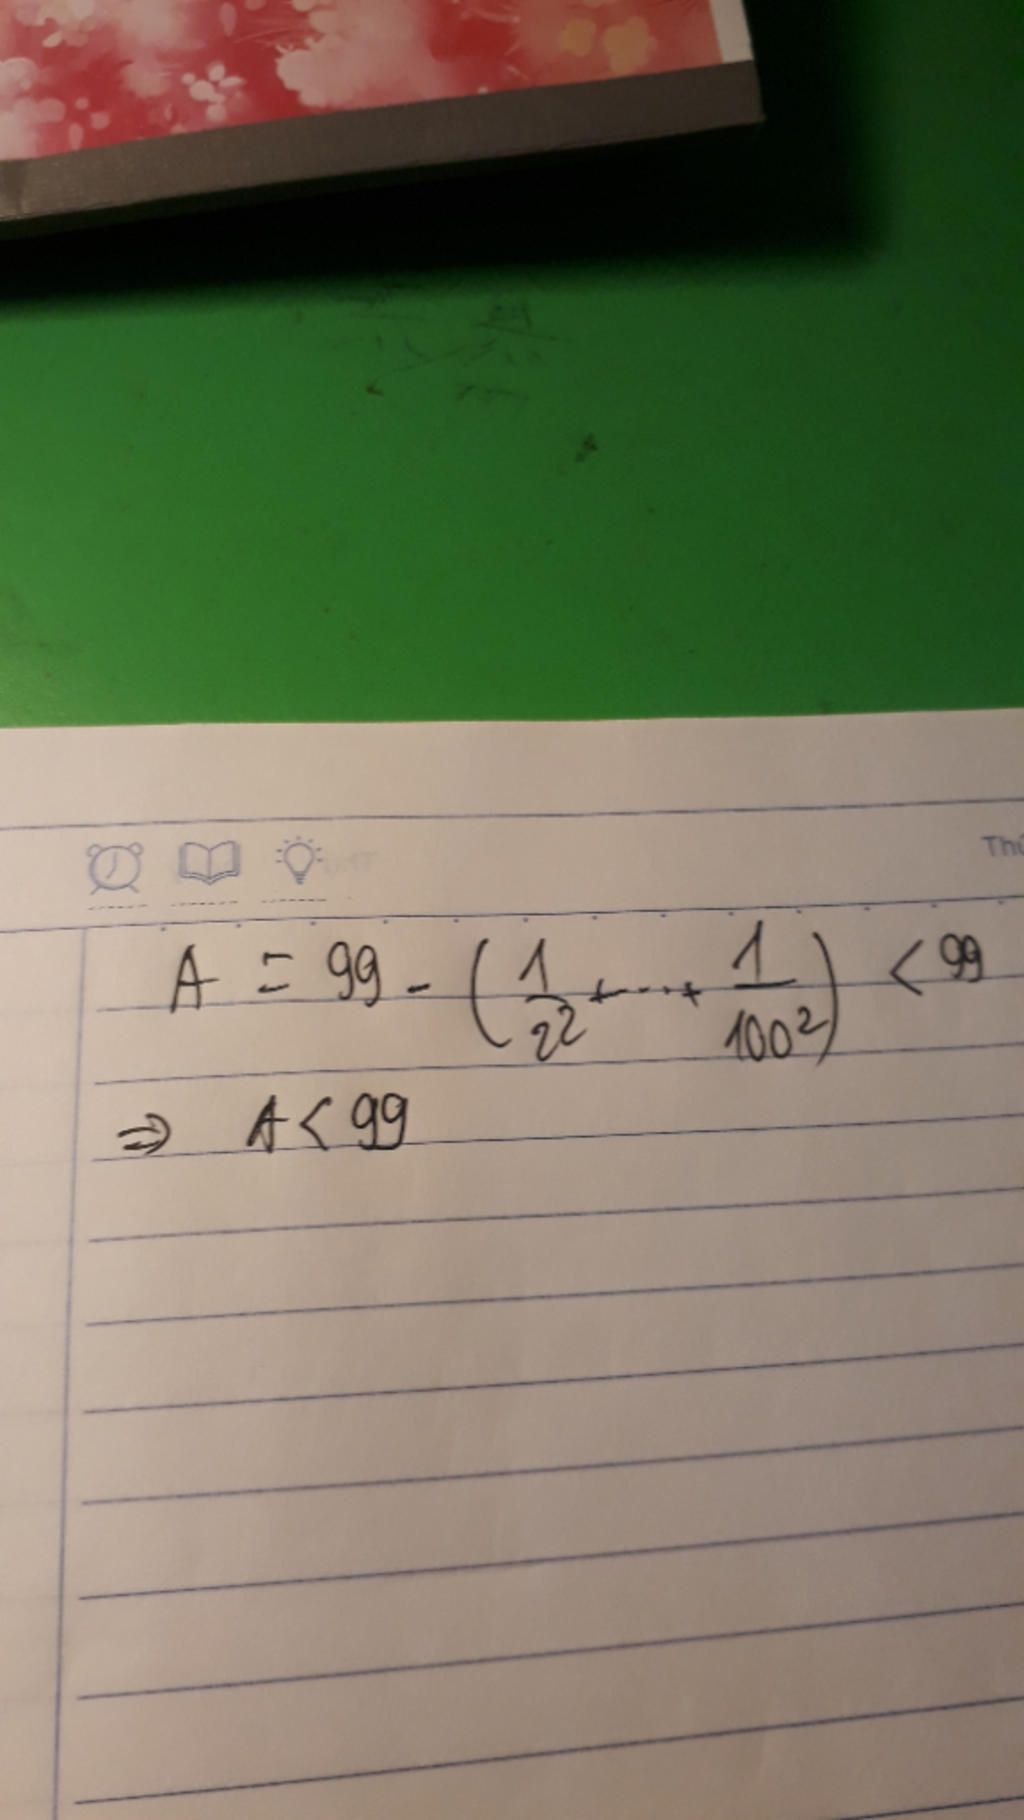 Thứ
A = 99 - (1/2² + ... + 1/100²) < 99
⇒ A < 99